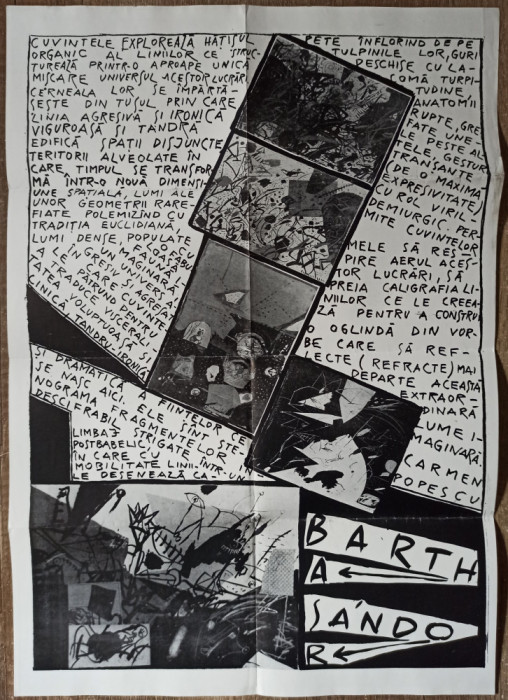 CUVINTELE EXPLOREAZĂ HĂȚIȘUL
ORGANIC AL LINIILOR CE STRUC-
TUREAZĂ PRINTR-O APROAPE UNICĂ
MIȘCARE UNIVERSUL ACESTOR LUCRĂRI
CERNEALA LOR SE ÎMPĂRTĂ-
ȘEȘTE DIN TUȘUL PRIN CARE
LINIA AGRESIVĂ ȘI IRONICĂ
VIGUROASĂ ȘI TANDRĂ
EDIFICĂ SPAȚII DISJUNCTE
TERITORII ALVEOLATE ÎN
CARE TIMPUL SE TRANSFOR-
MĂ ÎNTR-O NOUĂ DIMENSI-
UNE SPAȚIALĂ, LUMI ALE
UNOR GEOMETRII RARE-
FIATE POLEMIZÎND CU
TRADIȚIA EUCLIDIANĂ,
LUMI DENSE, POPULATE
DE
UN UNIVERS
CARE CUVINTE-
LE PĂTRUND PENTRU A
TRADUCE VISCERALI-
TATEA VOLUPTUOASĂ ȘI
CINICĂ, TANDRU, IRONICĂ
ȘI DRAMATICĂ A FIINȚELOR CE
SE NASC AICI. ELE SÎNT STE-
NOGRAMA FRAGMENTELOR
DESCIFRABILE STRIGATE ÎNTR-UN
LIMBAJ
POSTBABELIC,
ÎN CARE CU
MOBILITATE LINII-
LE DESENEAZĂ CA-
PETE ÎNFLORIND DE PE
TULPINILE LOR, GURI
DESCHISE CU LA-
COMĂ TURPI-
TUDINE
ANATOMII
RUPTE, GRE-
FATE UNE-
LE PESTE AL-
TELE, GESTURI
TRANȘANTE
DE O MAXIMĂ
EXPRESIVITATE
CU ROL VIRIL-
DEMIURGIC. PER-
MITE CUVINTELOR
MELE SĂ RES-
PIRE AERUL ACES-
TOR LUCRĂRI, SĂ
PREIA CALIGRAFIA LI-
NIILOR CE LE CREEA-
ZĂ PENTRU A CONSTRUI
O OGLINDĂ DIN VOR-
BE CARE SĂ REF-
LECTE (REFRACTE) MAI
DEPARTE ACEASTĂ
EXTRAOR-
DINARĂ
LUME I-
MAGINARĂ.
CARMEN
POPESCU
BARTH
A
SÁNDO
R